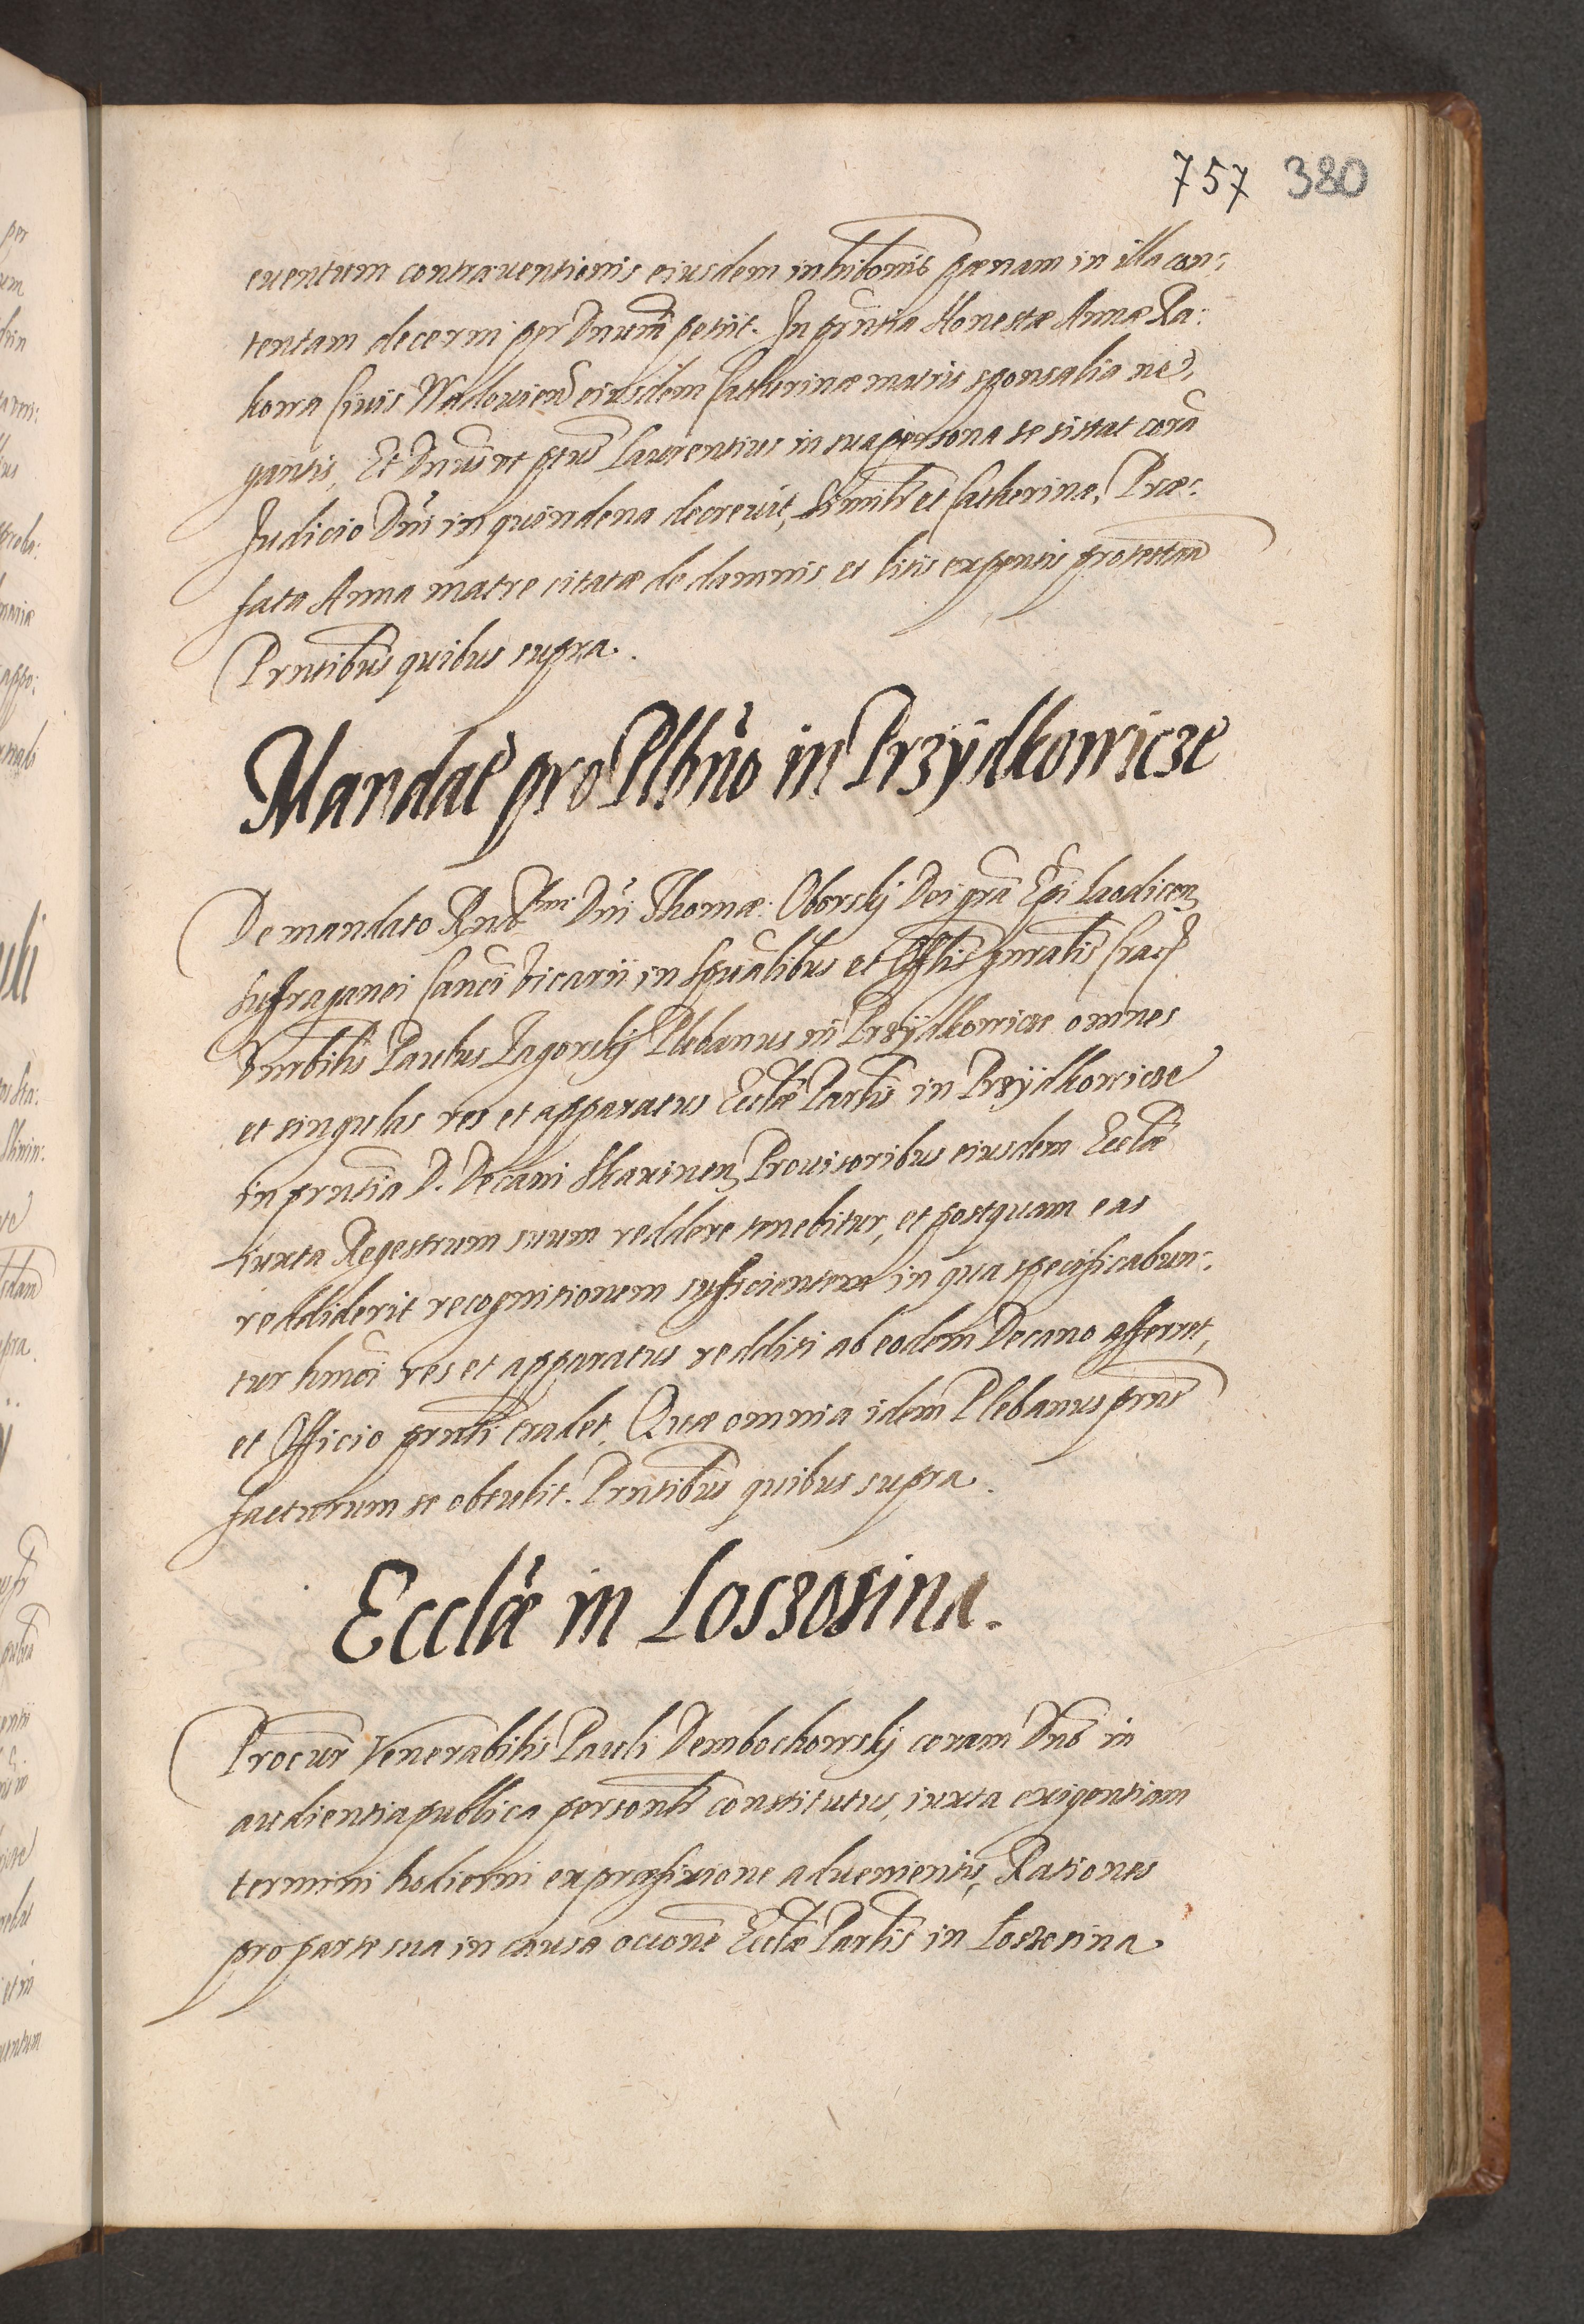 757 380
euentum contrauentionis eiusdem inhibonis pœnam in illa con:
tentam decerni per Dnum petiit. In prntia Honestæ Annæ Ra:
kowa Ciuis Wadouien eiusdem Catherinæ matris sponsalia ne:
gantis, Et Dnus ut ptus Laurentius in sua persona se sistat corā
Judicio Dni in quindena decreuit, Similr et Catherina, Præ:
fata Anna matre citatæ de damnis et litis expensis protestan
Prntibus quibus supra.
Mandat pro Plbno in Przÿdkowicze
De mandato Rndmi Dni Thomæ Oborskÿ Dei gra Epi Laodicen
Suffraganei Canci Vicarii in Spualibus et Offlis gnralis Crac
Vnrbilis Paulus Zagorskÿ Plebanus in Przÿdkowicze omnes
et singulas res et apparatus Ecclæ Parlis in Przÿdkowicze
in prntia D. Decani Skawinen Prouisoribus eiusdem Ecclæ
iuxta Regestrum suum reddere tenebitur, et postquam eas
reddiderit recognitionem sufficientem in qua specificabun:
tur hmoi res et apparatus redditi ab eodem Decano afferret,
et Officio prnti tradet. Quæ omnia idem Plebanus prns
facturum se obtulit. Prntibus quibus supra.
Ecclæ in Loszosina.
Procur Venerabilis Pauli Dembochowskÿ coram Dno in
audientia publica personlr constitutus, iuxta exigentiam
termini hodierni ex præfixione aduenientis, Rationes
pro parte sua in causa occione Ecclæ Parlis in Loszosina